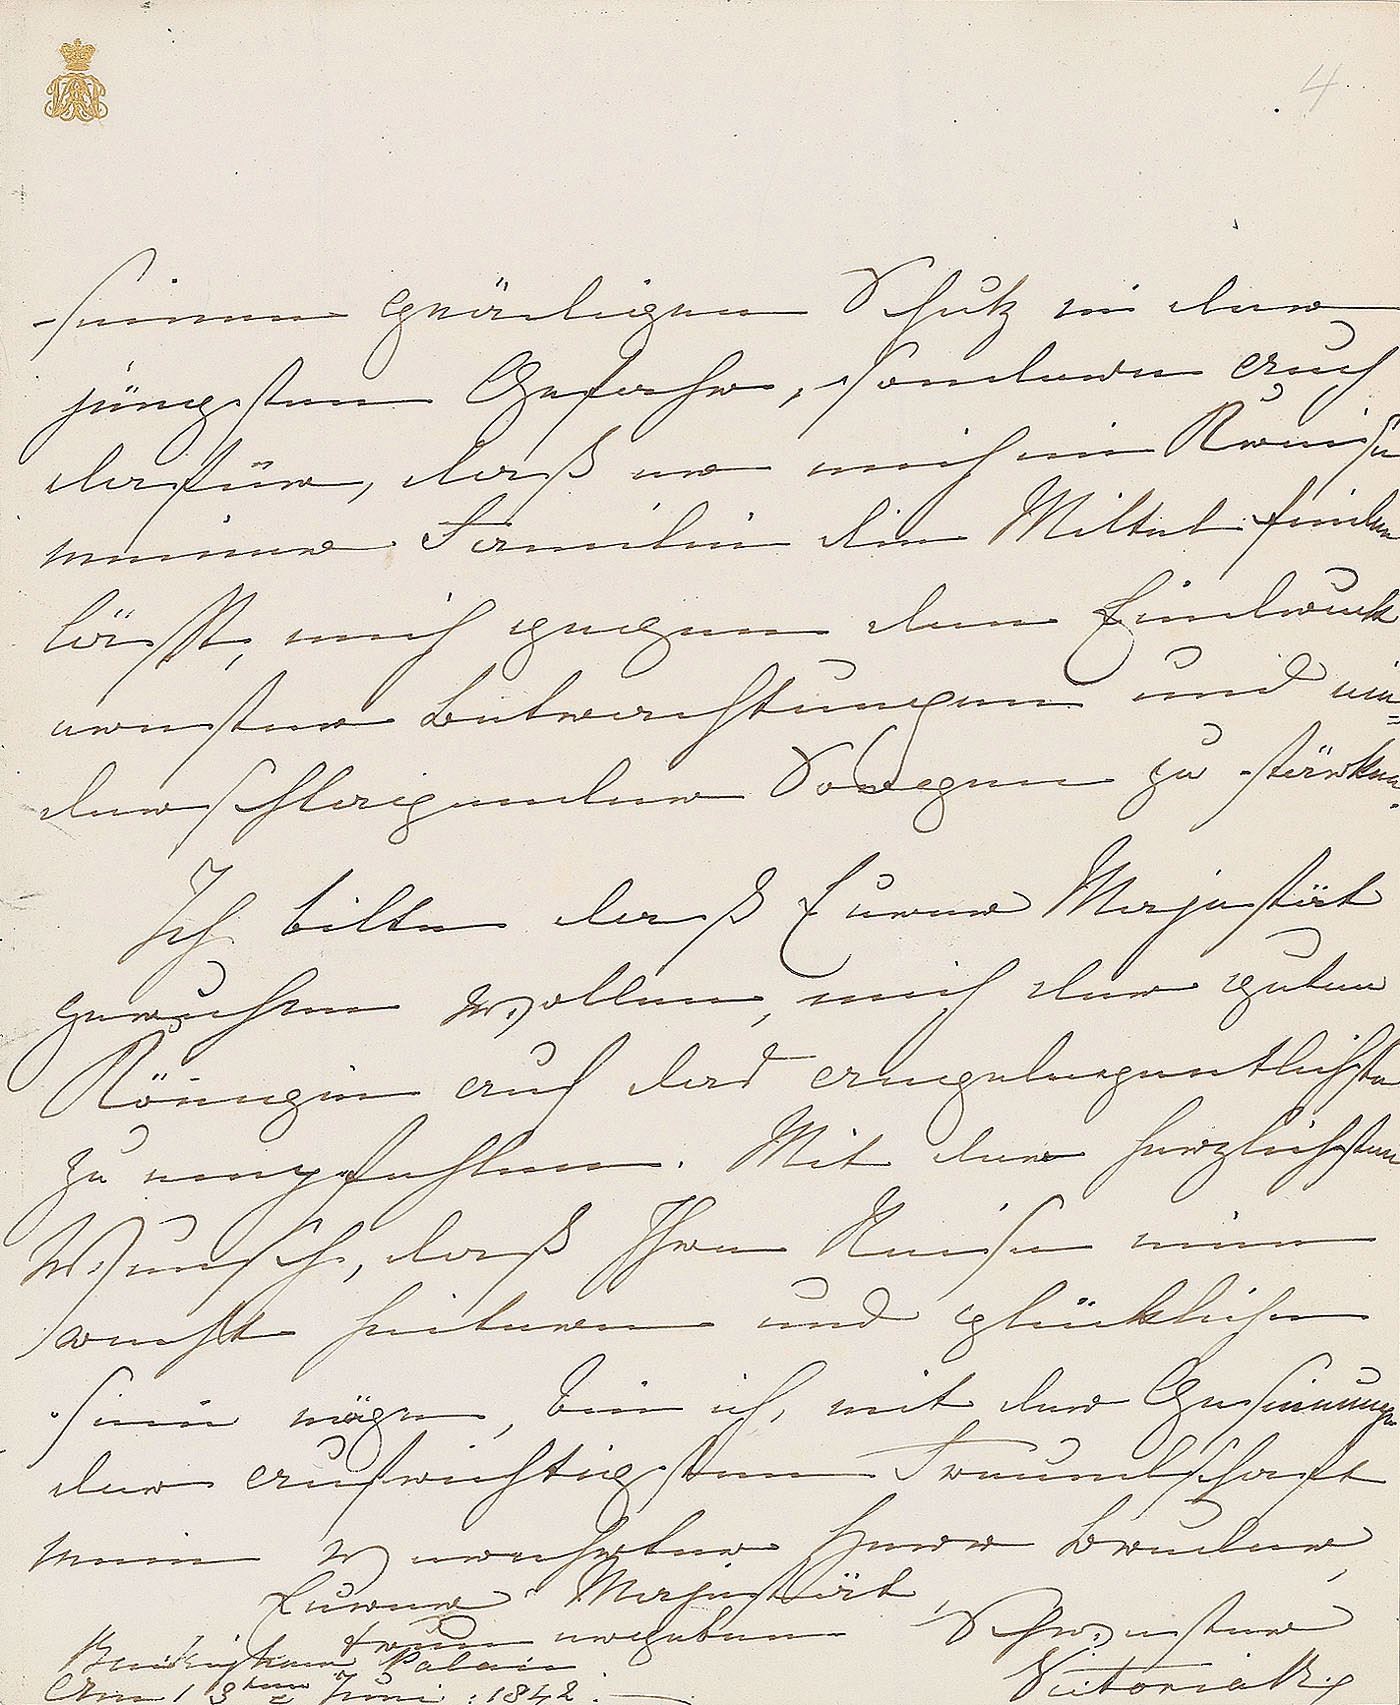 4
seinen gnädigen Schutz in der
jüngsten Gefahr, sondern auch
dafür, daß er mich im Kreise
meiner Familie die Mittel finden
läßt, mich gegen den Eindruck
ernster Betrachtungen und nie=
derschlagender Sorgen zu stärken.
Ich bitte daß Eurer Majestät
geruhen wollen, mich der guten
Königin auf das angelegentlichste
zu empfehlen. Mit dem herzlichsten
Wunsch, daß Ihre Reise eine
recht heitere und glückliche
sein möge, bin ich, mit den Gesinnungen
der aufrichtigsten Freundschaft
mein verehrter Herr Bruder,
Eurer Majestät,
treu ergebene Schwester
Buckingham Palace Victoria R.
Am 13ten Juni: 1842.